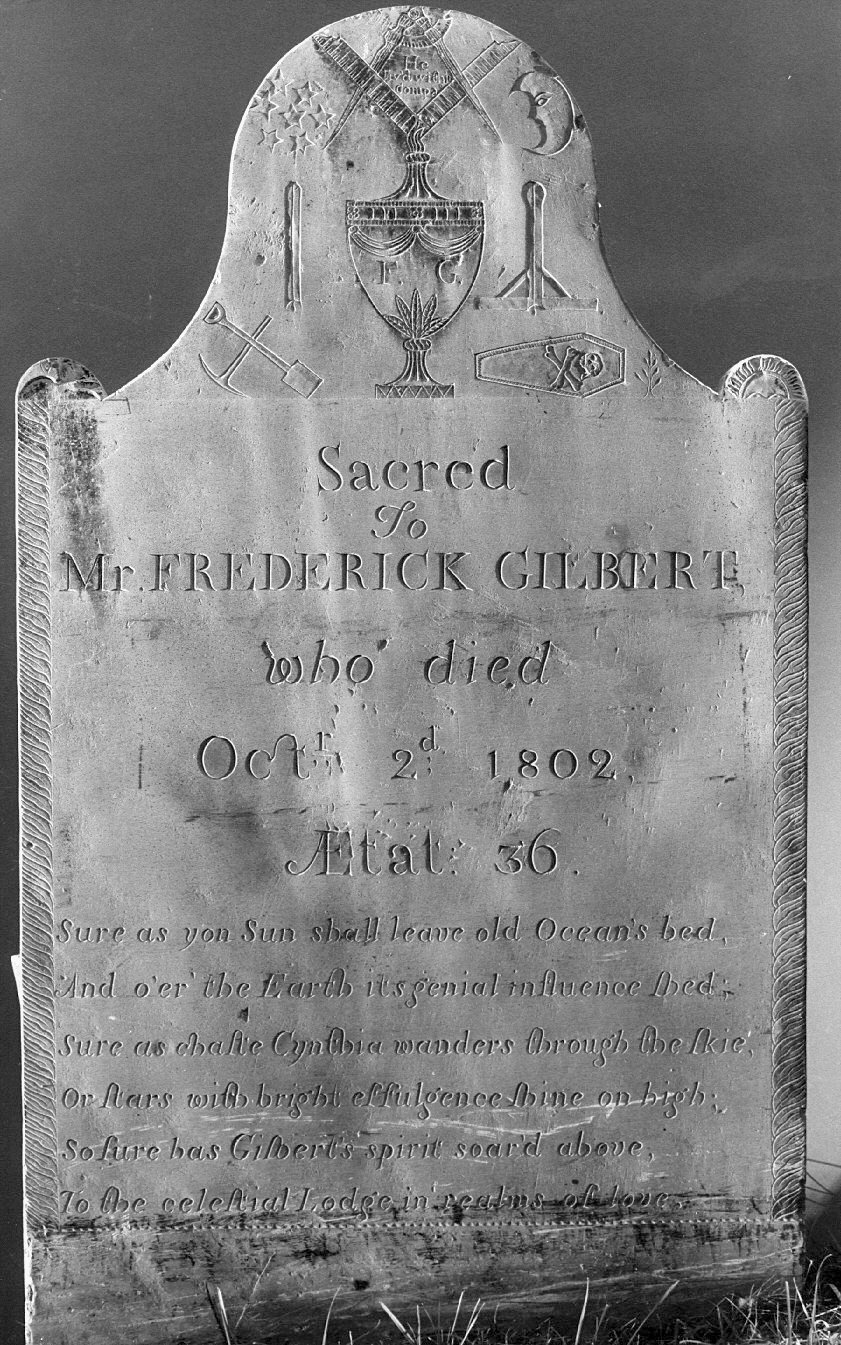 He
liv'd within
Compass
F. G.
Sacred
To
Mr. FREDERICK GILBERT,
who died
Octr. 2d. 1802.
Ætat: 36.
Sure as yon Sun shall leave old Ocean's bed,
And o'er the Earth its genial inſluence ſhed;
Sure as chaſte Cynthia wanders through the ſkie,
Or ſtars with bright eſſulgence ſhine on high;
So ſure has Gilbert's spirit soar'd above,
To the celeſtial Lodge in realms of love.